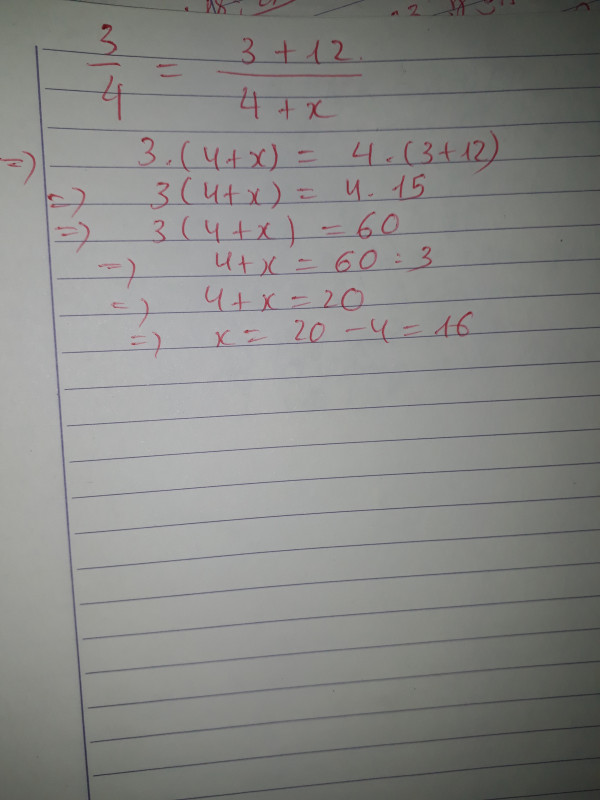 3/4 = (3 + 12)/(4 + x)
=) 3.(4+x) = 4.(3+12)
=) 3(4+x) = 4.15
=) 3(4+x) = 60
=) 4+x = 60:3
=) 4+x = 20
=) x = 20 - 4 = 16